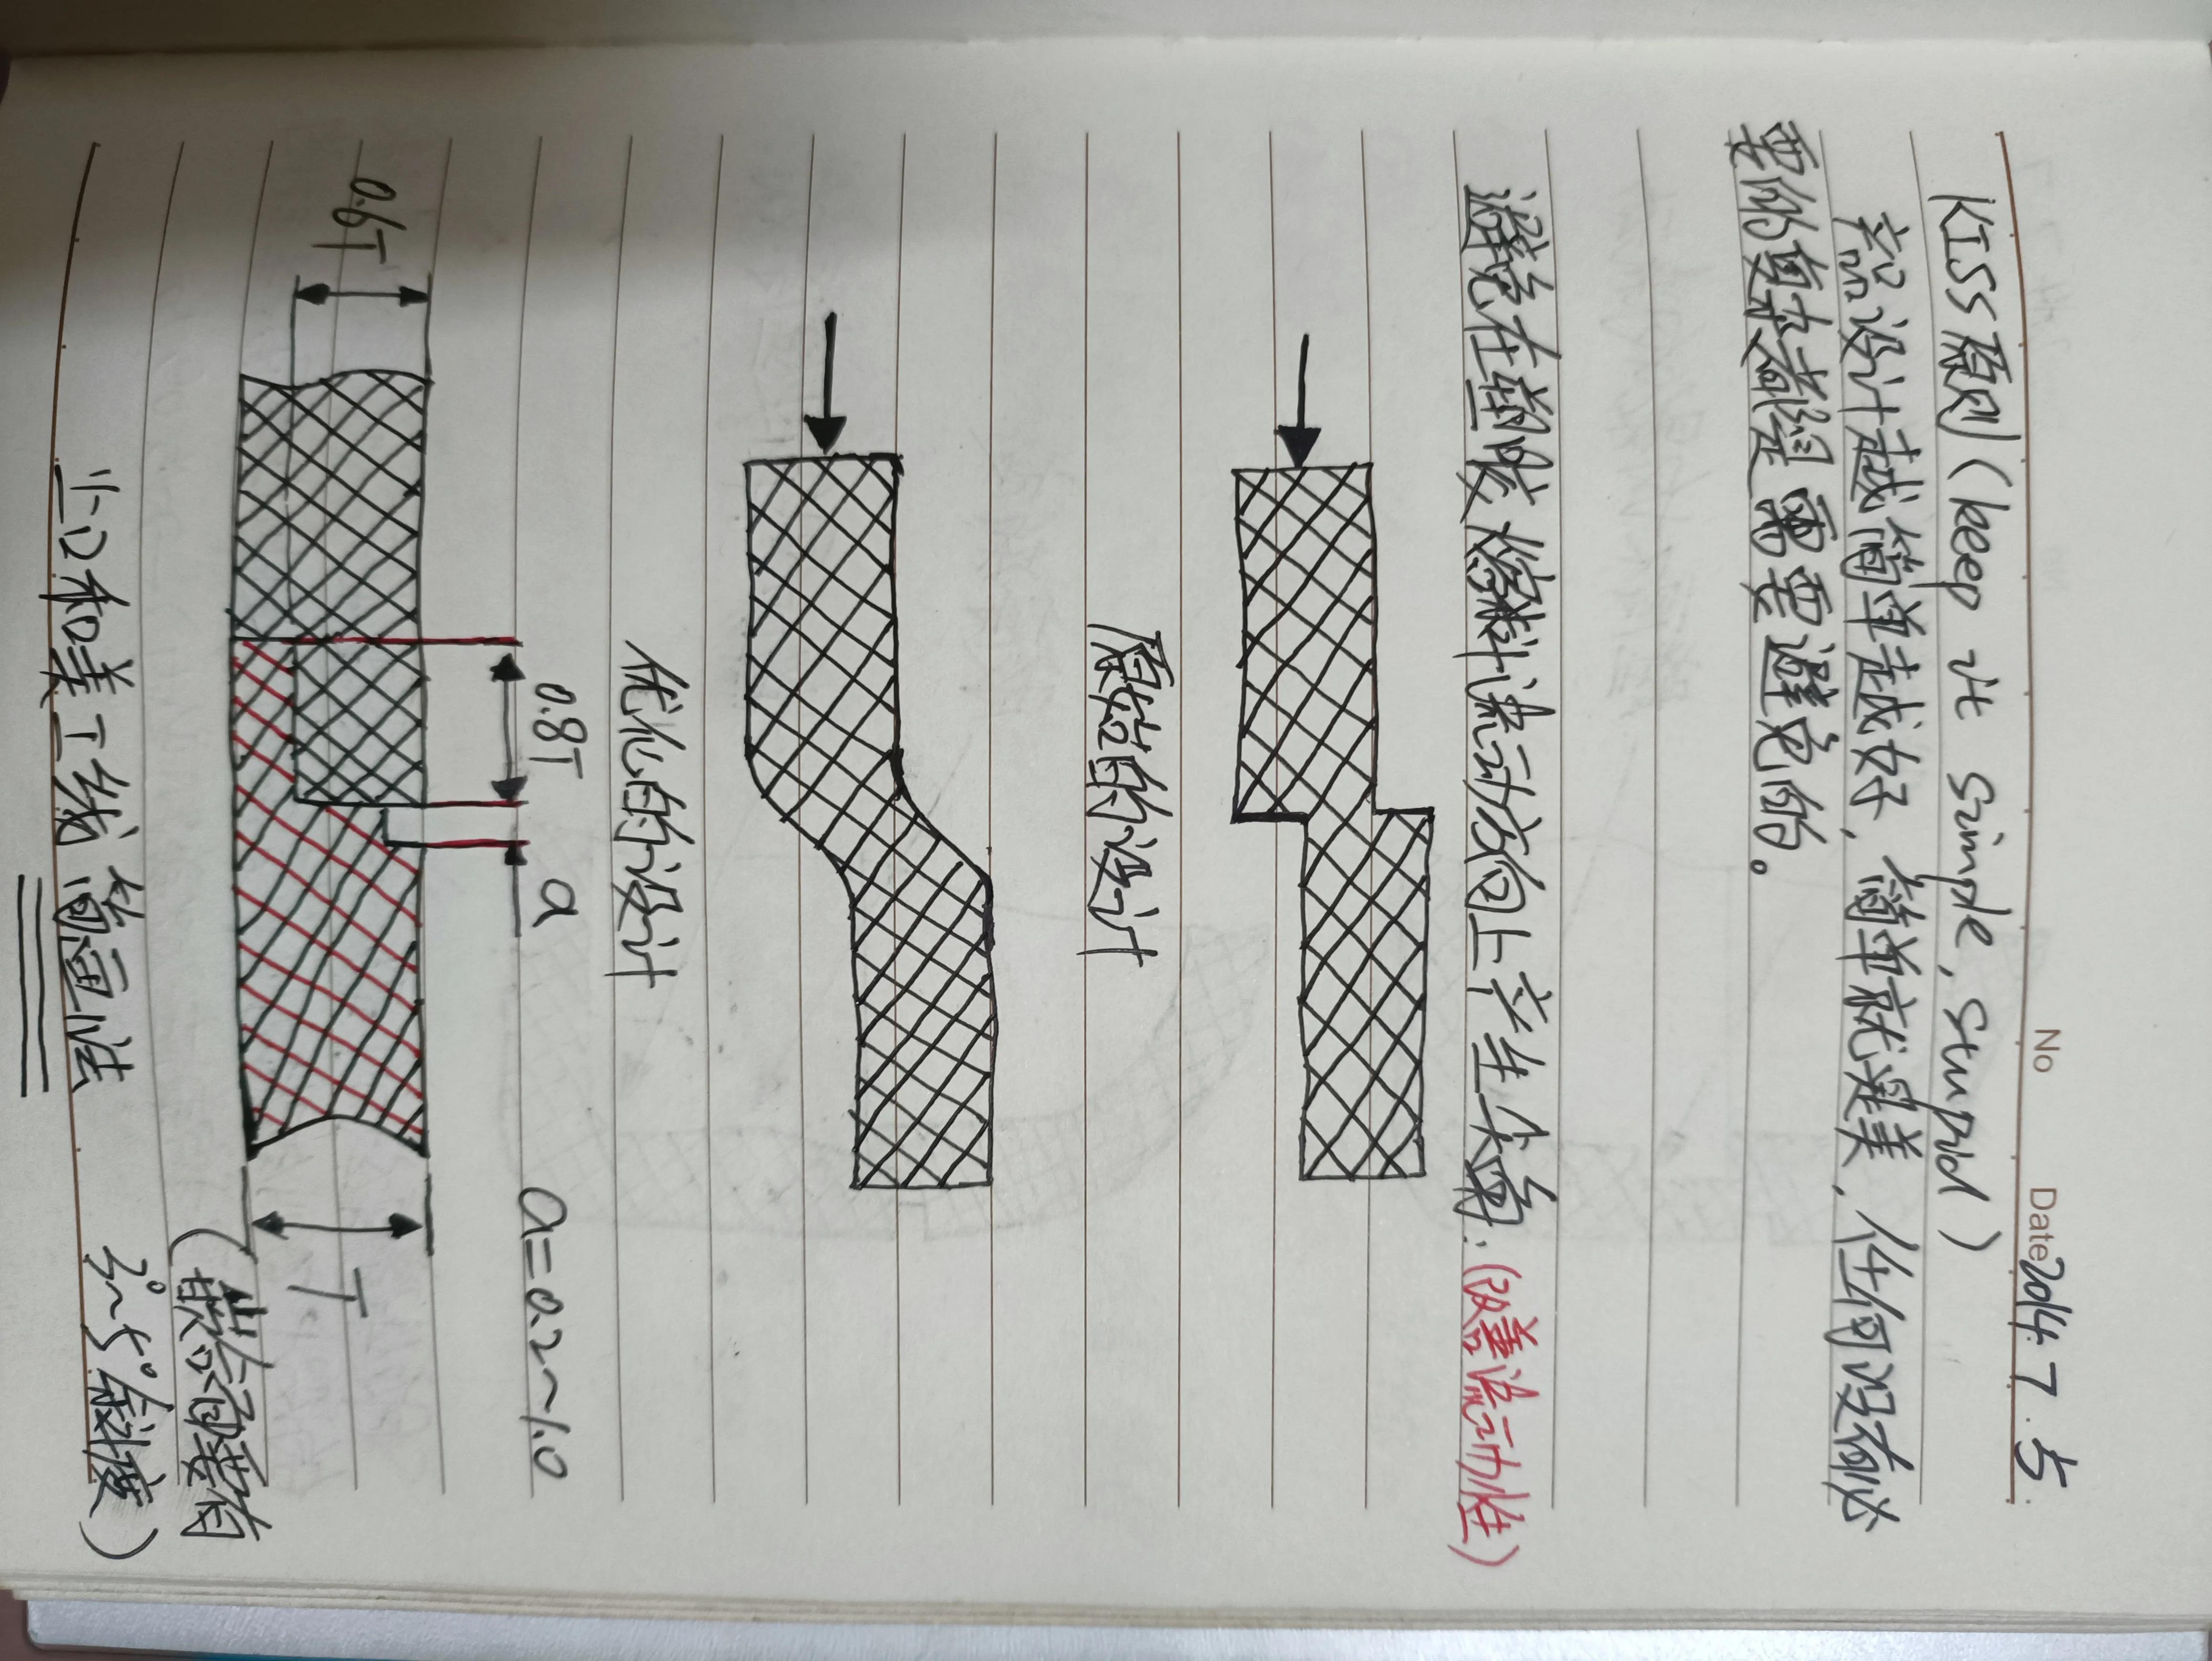 No Date 2014.7.5.
KISS原则(keep it simple, stupid)
产品设计越简单越好,简单就是美,任何没有必
要的复杂都是需要避免的。
避免在塑胶熔料流动方向上产生尖角:(改善流动性)
原始的设计
优化的设计
0.8T a a=0.2~1.0
0.6T T
(嵌合面要有
止口和美工线 简画法 3°~5°斜度)